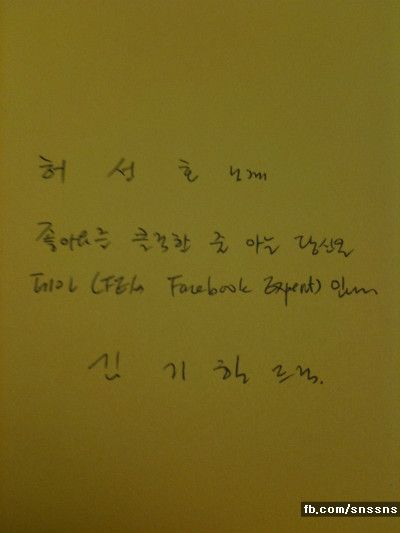 허 성 호 님께
좋아요를 클릭할 줄 아는 당신은
페이 (FE is Facebook Expert) 입니다
김 기 한 드림.
fb.com/snssns